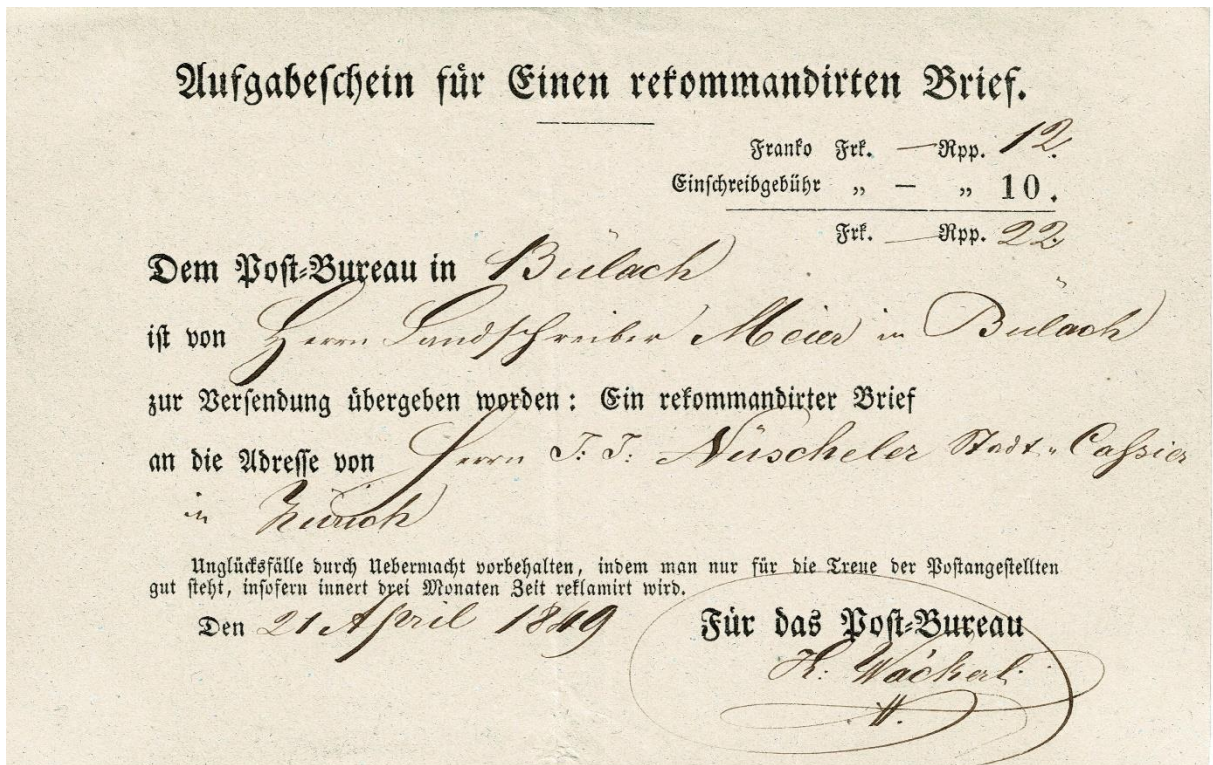 Aufgabeschein für Einen rekommandirten Brief.
Franko Frk. — Rpp. 12.
Einschreibgebühr „ — „ 10.
Frk. — Rpp. 22.
Dem Post-Bureau in Bülach
ist von Herrn Landschreiber Meier in Bülach
zur Versendung übergeben worden: Ein rekommandirter Brief
an die Adresse von Herrn J: J: Nüscheler Stadt-Cassier
in Zürich
Unglücksfälle durch Uebermacht vorbehalten, indem man nur für die Treue der Postangestellten
gut steht, insofern innert drei Monaten Zeit reklamirt wird.
Den 21 April 1849
Für das Post-Bureau
Wäckerl: